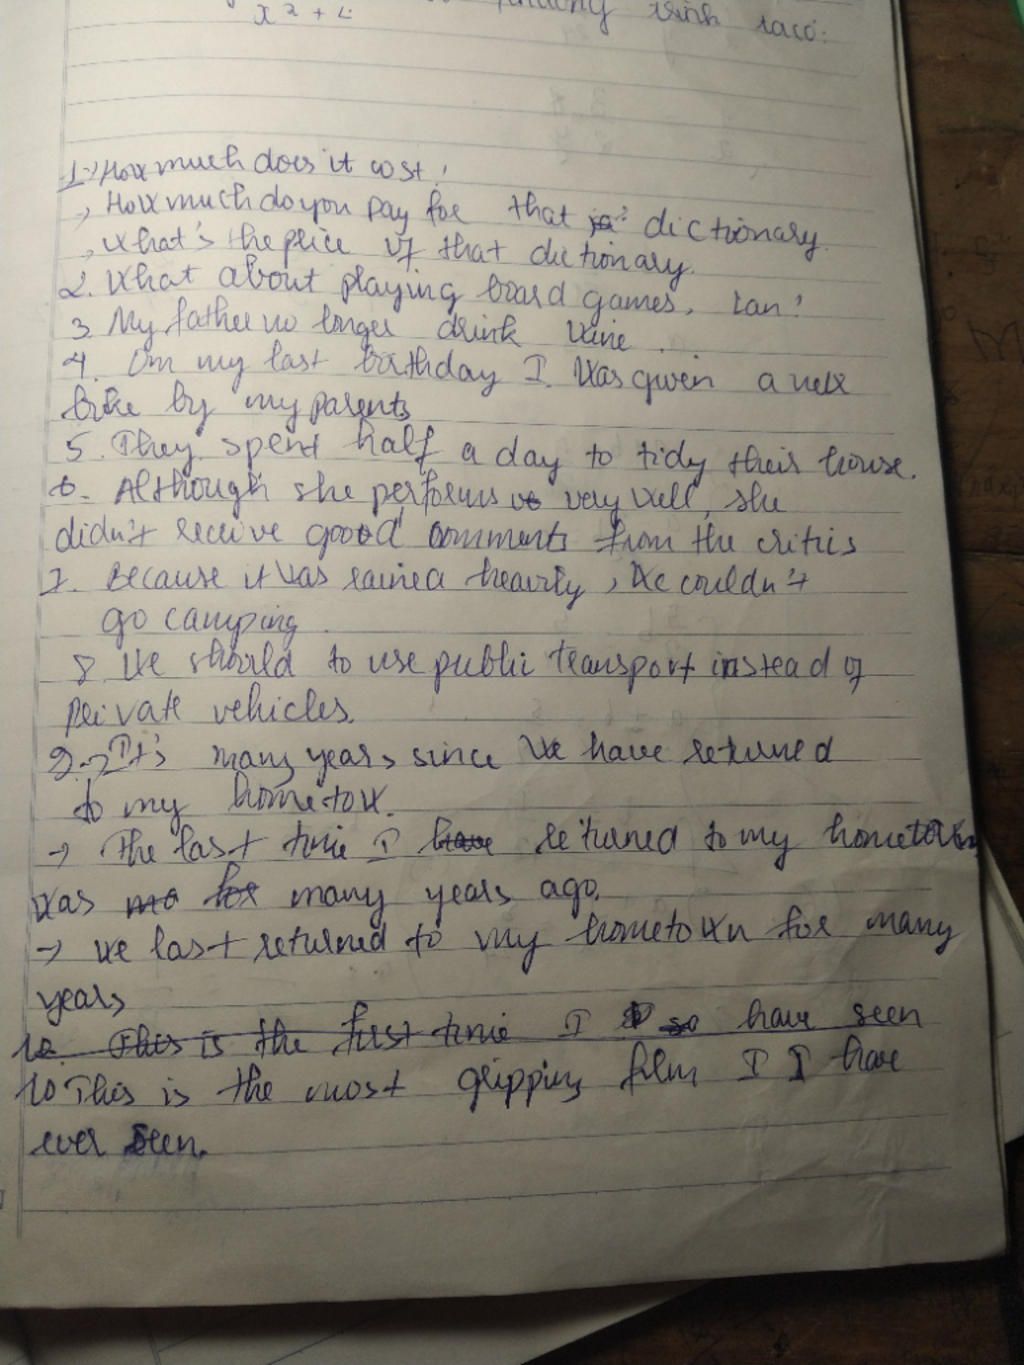 x² + 4 trình sacó:
1. How much does it cost?
→ How much do you pay for that dictionary.
→ What's the price of that dictionary.
2. What about playing board games, Lan?
3. My father no longer drink wine.
4. On my last birthday I. was given a new
bike by my parents
5. They spent half a day to tidy their house.
6. Although she performs very well, she
didn't receive good comments from the critics
7. Because it was rained heavily, we couldn't
go camping.
8. We should to use public transport instead of
private vehicles.
9. → It's many years since we have returned
to my hometow.
→ The last time I have returned to my hometown
was for many years ago.
→ We last returned to my hometown for many
years
10. This is the first time I so have seen
10 This is the most gripping film I I have
ever seen.